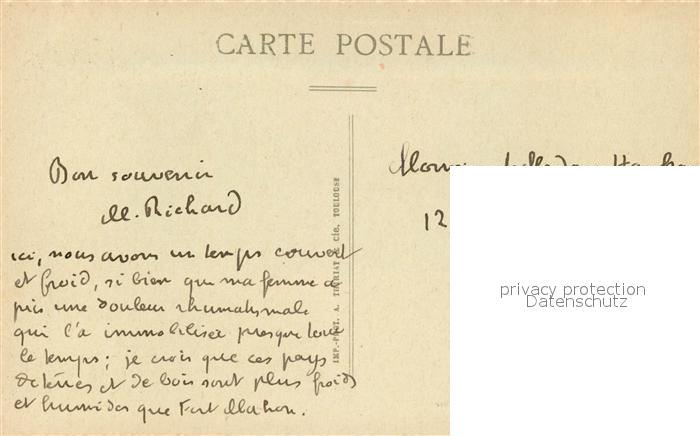 CARTE POSTALE
Bon souvenir
M. Richard
ici, nous avons un temps couvert
et froid, si bien que ma femme a
pris une douleur rhumatismale
qui l'a immobilisée presque tout
le temps ; je crois que ces pays
de et de bois sont plus froids
et humides que Fort Mahon.
IMP.-PHOT. A. THIRIAT & Cie, TOULOUSE
12
privacy protection
Datenschutz